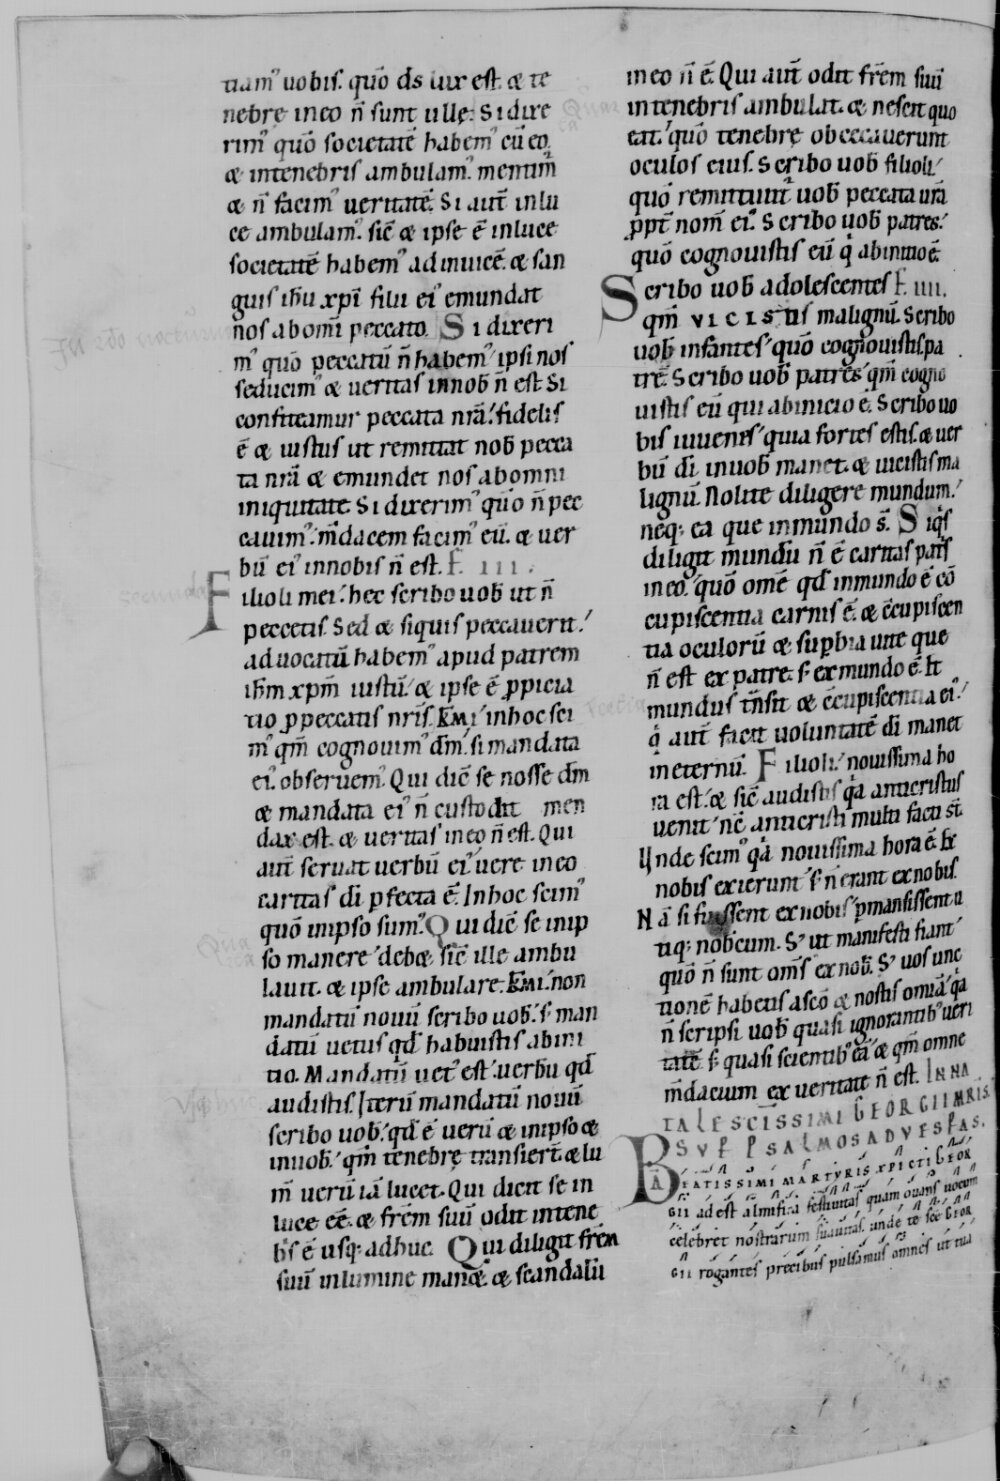 tiam᾽ uobis. quō ds lux est. & te
nebrę in eo n̄ sunt ullę. Si dixe
rim᾽ quō societatē habem᾽ cū eo.
& in tenebris ambulam᾽. mentim᾽
& n̄ facim᾽ ueritatē. Si aut̄ in lu
ce ambulam᾽. sic̄ & ipse ē in luce
societatē habem᾽ ad inuicē. & san
guis ihu xpi filii ei᾽ emundat
nos ab omī peccato. Si dixeri
m᾽ quō peccatū n̄ habem᾽ ipsi nos
seducim᾽ & ueritas in nob̄ n̄ est. Si
confiteamur peccata nr̄a. fidelis
ē & iustus ut remittat nob̄ pecca
ta nr̄a & emundet nos ab omni
iniquitate. Si dixerim᾽ quō n̄ pec
cauim᾽. m̄dacem facim᾽ eū. & uer
bū ei᾽ in nobis n̄ est. F. III.
Filioli mei. hec scribo uob̄ ut n̄
peccetis. Sed & siquis peccauerit.
aduocatū habem᾽ apud patrem
ihm xpm iustū. & ipse ē ppicia
tio p peccatis nr̄is. Et in hoc sci
m᾽ qm̄ cognouim᾽ dm̄. si mandata
ei᾽ obseruem᾽. Qui dic̄ se nosse dm̄
& mandata ei᾽ n̄ custodit men
dax est. & ueritas in eo n̄ est. Qui
aut̄ seruat uerbū ei᾽ uere in eo
caritas di pfecta ē. In hoc scim᾽
quō in ipso sum᾽. Qui dic̄ se in ip
so manere deb&. sic̄ ille ambu
lauit. & ipse ambulare. Kmi. non
mandatū nouū scribo uob̄. s̄ man
datū uetus qd̄ habuistis ab ini
tio. Mandatū uet᾽ est uerbū qd̄
audistis. Iterū mandatū nouū
scribo uob̄. qd̄ ē uerū & in ipso &
in uob̄. qm̄ tenebrę transier̄t & lu
m̄ uerū iā lucet. Qui dicit se in
luce ēē. & frēm suū odit in tene
bris ē usq; adhuc. Qui diligit frēm
suū in lumine man&. & scandalū
in eo n̄ ē. Qui aut̄ odit frēm suū
in tenebris ambulat. & nescit quo
eat. quō tenebrę obcecauerunt
oculos eius. Scribo uob̄ filioli.
quō remittunt᾽ uob̄ peccata ur̄a
ppt̄ nom̄ ei᾽. Scribo uob̄ patres.
quō cognouistis eū q̇ ab initio ē.
Scribo uob̄ adolescentes F. IIII.
qm̄ VICISTIS malignū. Scribo
uob̄ infantes quō cognouistis pa
trē. Scribo uob̄ patres qm̄ cogno
uistis eū qui ab inicio ē. Scribo uo
bis iuuenes quia fortes estis. & uer
bū di in uob̄ manet. & uicistis ma
lignū. Nolite diligere mundum.
neq; ea que in mundo s̄. Siq̇s
diligit mundū n̄ ē caritas patris
in eo. quō omē qd̄ in mundo ē cō
cupiscentia carnis ē. & c̄cupiscen
tia oculorū & supbia uite que
n̄ est ex patre. s̄ ex mundo ē. Et
mundus t̄nsit & c̄cupiscentia ei᾽.
q̇ aut̄ facit uoluntatē di manet
in eternū. Filioli. nouissima ho
ra est. & sic̄ audistis q̇a anticristus
uenit nc̄ anticristi multi facti st̄
Unde scim᾽ q̇a nouissima hora ē. Ex
nobis exierunt s̄ n̄ erant ex nobis.
Nā si fuissent ex nobis pmansissent u
tiq; nobcum. S; ut manifesti fiant
quō n̄ sunt om̄s ex nob̄. S; uos unc
tionē habetis a scō & nostis omīa. q̇a
n̄ scripsi uob̄ quasi ignorantib᾽ ueri
tatē s̄ quasi scientib᾽ eā & qm̄ omne
m̄dacium ex ueritate n̄ est. IN NA
TALE SCISSIMI GEORGII MRIS.
SUP PSALMOS AD VESPAS.
BEATISSIMI MARTYRIS XPICTI GEOR
GII adest almifica festiuitas quam ouans uocum
celebret nostrarum suauitas unde te scē GEOR
GII rogantes precibus pulsamus omnes ut tua